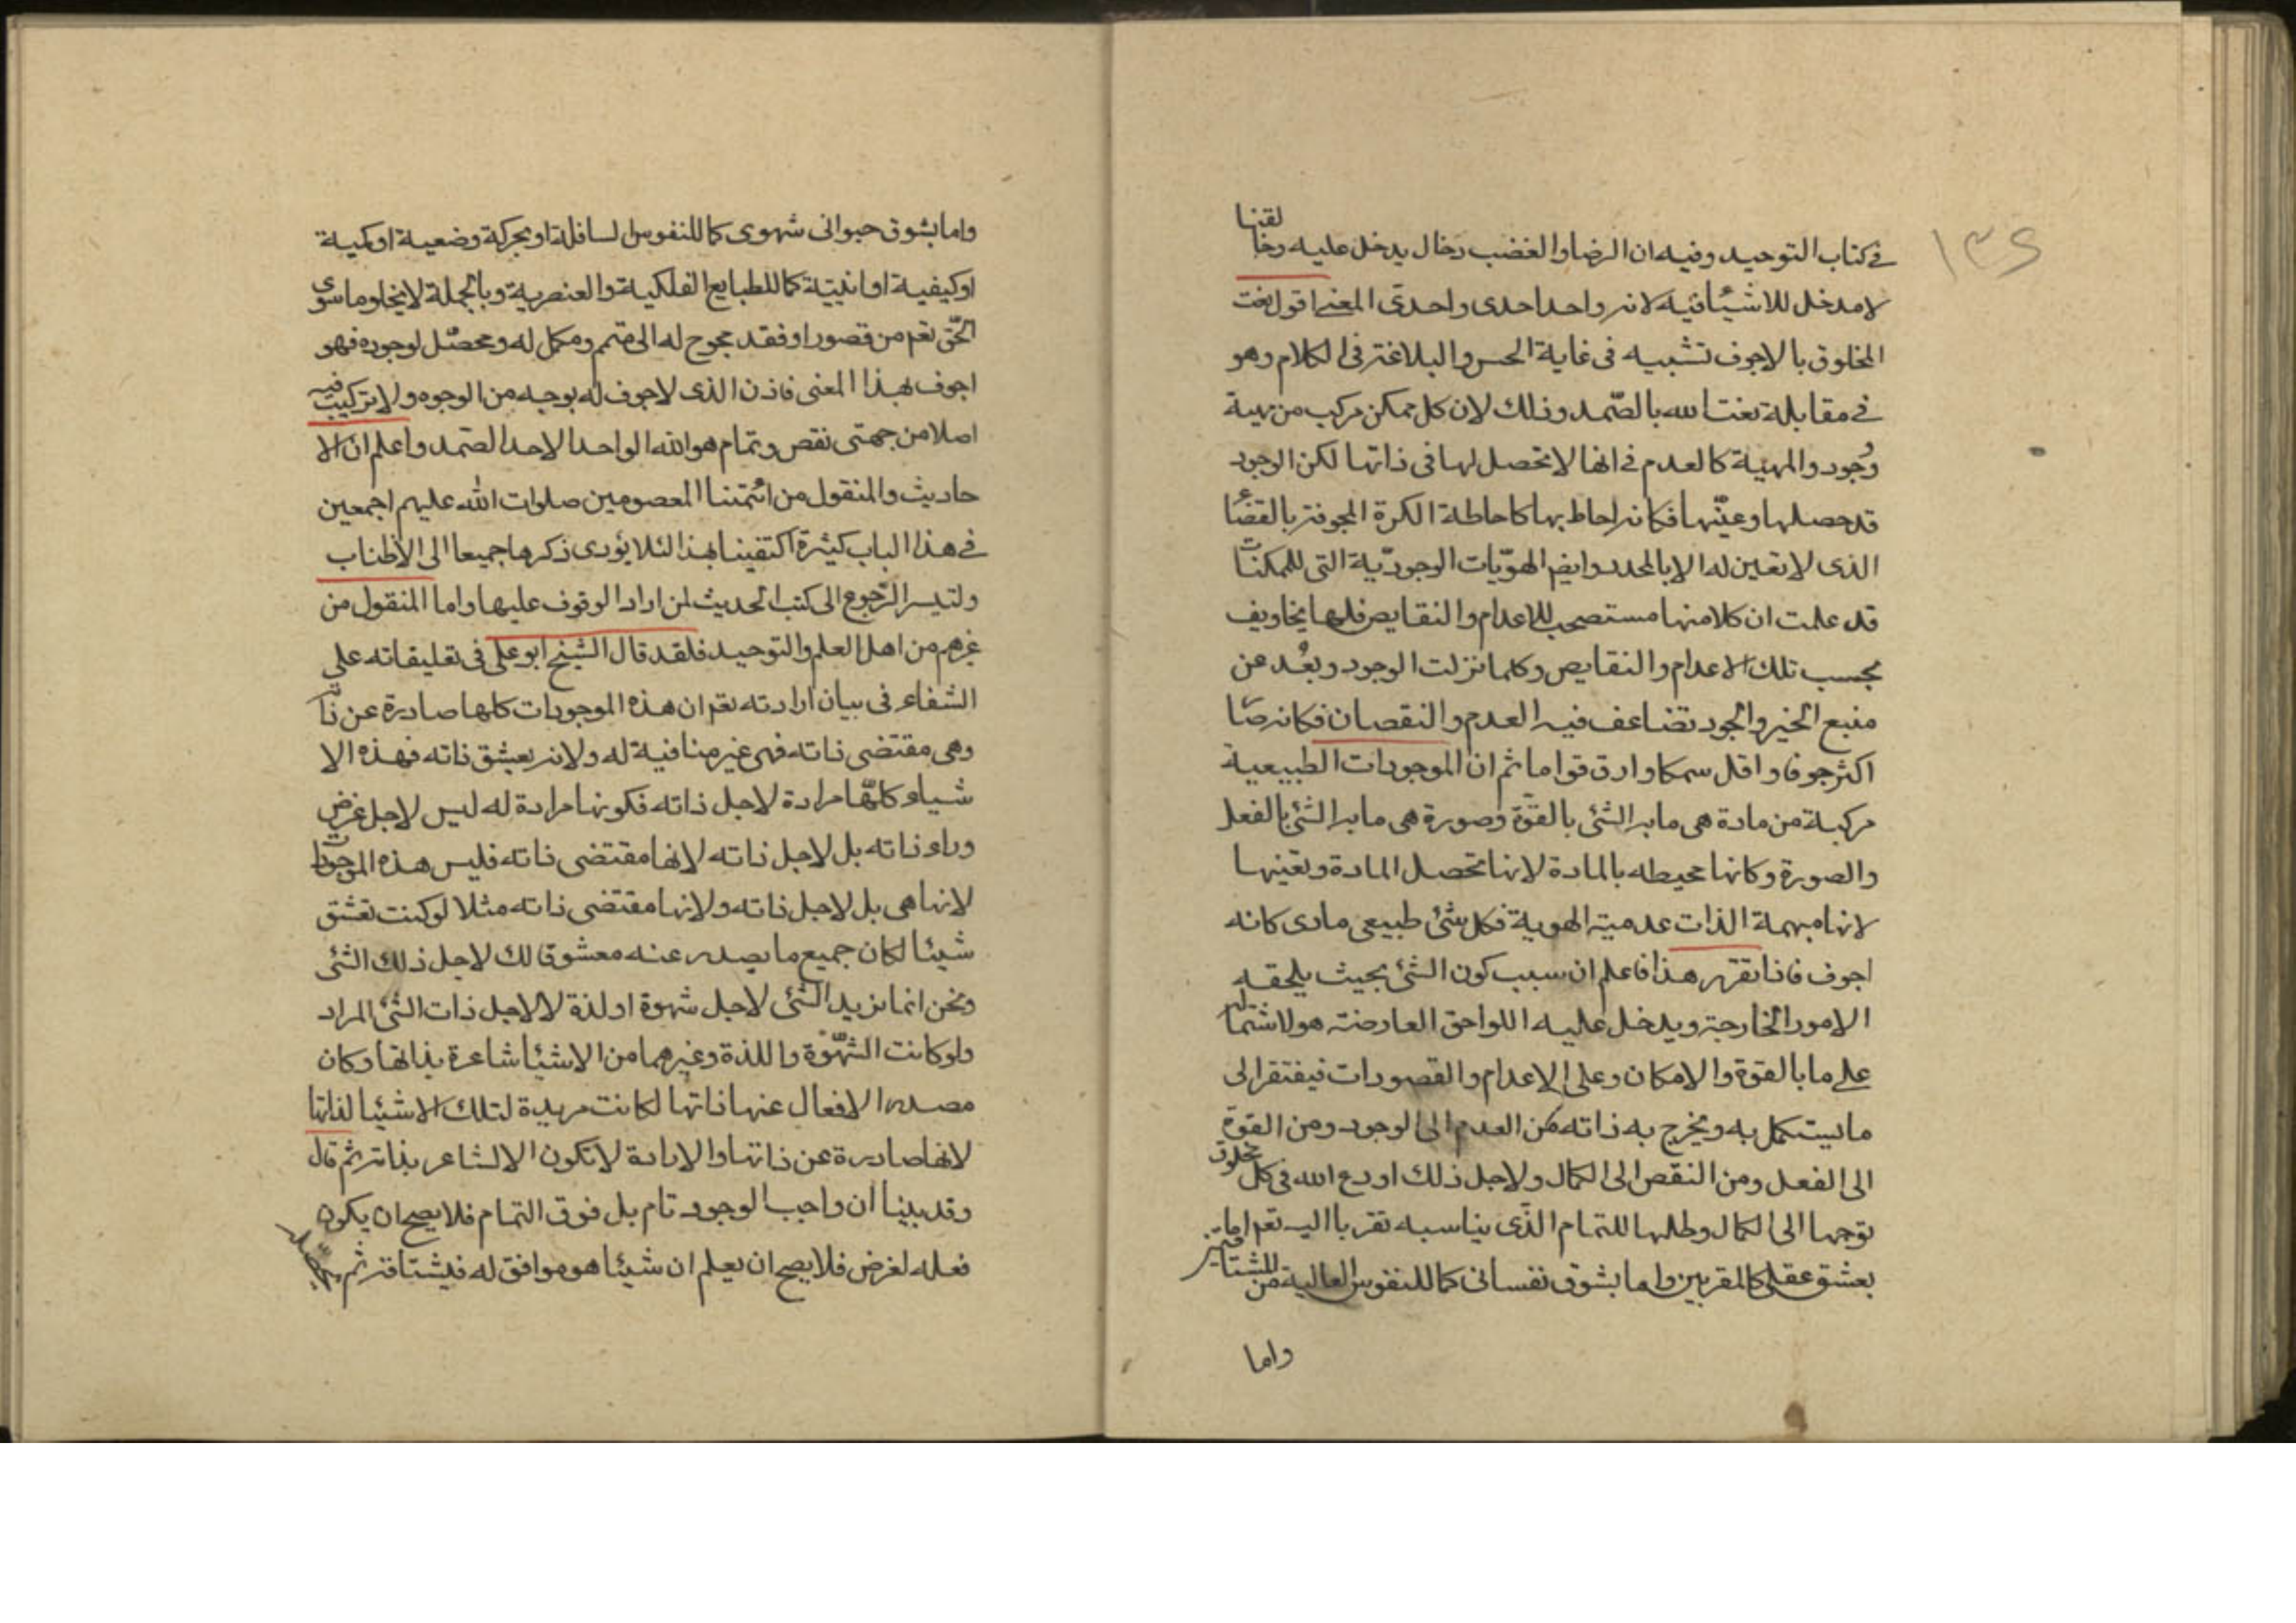 ١٣٤
في كتاب التوحيد وفيه ان الرضا والغضب دخال يدخل عليه وخالقنا
لا مدخل للاشيا فيه لانه واحد احدى واحدى المعنى اقول نعت
المخلوق بالاجوف تشبيه في غاية الحسن والبلاغة في الكلام وهو
في مقابلة نعت الله بالصّمد وذلك لان كل ممكن مركب من مهية
وُجود والمهية كالعدم في انها لا تحصل لها في ذاتها لكن الوجود
قد حصلها وعيّنها فكانه احاط بها كاحاطة الكرة المجوفة بالفضاء
الذى لا تعين له الا بالمحدد وايضا الهوّيات الوجودّية التى للممكنات
قد علمت ان كلا منها مستصحب للاعدام والنقايص فلها تجاويف
بحسب تلك الاعدام والنقايص وكلما نزلت الوجود وبعُد عن
منبع الخير والجود تضاعف فيه العدم والنقصان فكانه صا
اكثر جوفا واقل سمكا وادق قواما ثم ان الموجودات الطبيعية
مركبة من مادة هى ما به الشئ بالقوّة وصورة هى ما به الشئ بالفعل
والصورة وكانها محيطه بالمادة لانها تحصل المادة وتعينها
لانها مبهمة الذات عدمية الهوية فكل شئ طبيعى مادى كانه
اجوف فاذا تقرر هذا فاعلم ان سبب كون الشئ بحيث يلحقه
الامور الخارجة ويدخل عليه اللواحق العارضة هو لاشتماله
على ما بالقوة والامكان وعلى الاعدام والقصورات فيفتقر الى
ما يستكمل به ويخرج به ذاته من العدم الى الوجود ومن القوّة
الى الفعل ومن النقص الى الكمال ولاجل ذلك اودع الله في كل مخلوق
توجها الى الكمال وطلبا للتمام الذى يناسبه تقربا اليه تعم اما
بعشق عقلى كالمقربين واما بشوق نفسانى كما للنفوس العالية من
واما
واما بشوق حيوانى شهوى كما للنفوس السافلة او بحركة وضعية او كمية
او كيفية او اينيّة كما للطبايع الفلكية والعنصرية وبالجملة لا يخلو ما سوى
الحّق تعم من قصور او فقد محوج له الى متمم ومكمل له ومحصّل لوجوده فهو
اجوف بهذا المعنى فاذن الذى لا جوف له بوجه من الوجوه ولا تركيب فيه
اصلا من جهتى نقص وتمام هو الله الواحد الاحد الصّمد واعلم ان الا
حاديث والمنقول من ائمّتنا المعصومين صلوات الله عليهم اجمعين
في هذا الباب كثيرة اكتفينا بهذا لئلا يؤدى ذكرها جميعا الى الاطناب
ولتيسر الرّجوع الى كتب الحديث لمن اراد الوقوف عليها واما المنقول من
غيرهم من اهل العلم والتوحيد فلقد قال الشيخ ابو على في تعليقاته على
الشفاء في بيان ارادته تعم ان هذه الموجودات كلها صادرة عن ذا
وهى مقتضى ذاته فهى غير منافية له ولانه يعشق ذاته فهذه الا
شياء كلّها مرادة لاجل ذاته فكونها مرادة له ليس لاجل غرض
وراء ذاته بل لاجل ذاته لانها مقتضى ذاته فليس هذه الموجودات
لانها هى بل لاجل ذاته ولانها مقتضى ذاته مثلا لو كنت تعشق
شيئا لكان جميع ما يصدر عنه معشوقا لك لاجل ذلك الشئ
ونحن انما نريد الشئ لاجل شهوة او لذة لا لاجل ذات الشئ المراد
ولو كانت الشهّوة واللذة وغيرهما من الاشيا شاعرة بذاتها وكان
مصدر الافعال عنها ذاتها لكانت مريدة لتلك الاشيا لذاتها
لانها صادرة عن ذاتها والارادة لا تكون الا لشاعر بذاته ثم قال
وقد بينا ان واجب الوجود تام بل فوق التمام فلا يصح ان يكون
فعله لغرض فلا يصح ان يعلم ان شيئا هو موافق له فيشتاقه ثم